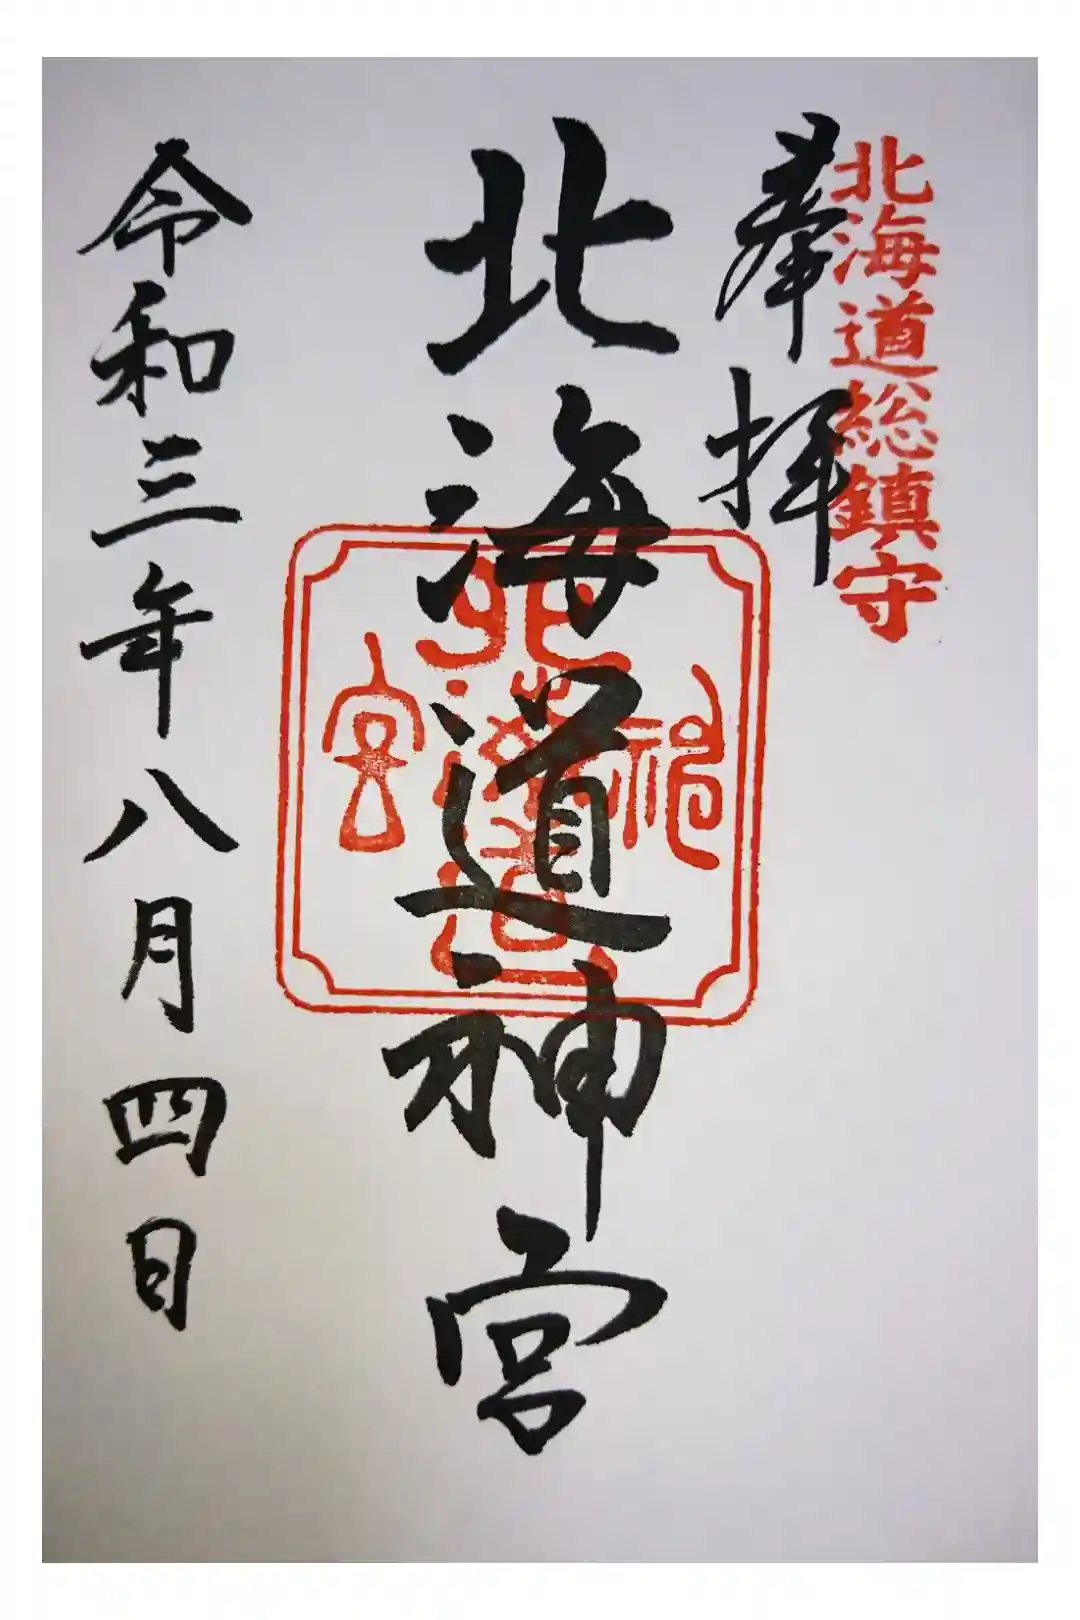 北海道総鎮守
奉拝
北海道神宮
令和三年八月四日